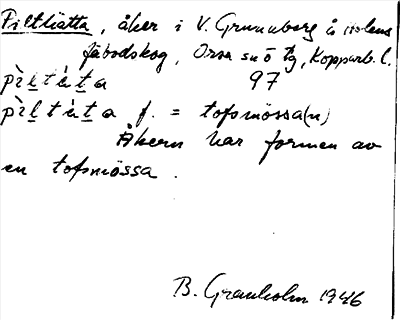 Piltlätta, åker i V. Grunuberg å Holens
fäbodskog, Orsa sn ö tg, Kopparb. l.
pìltὰta 97
pìltὰta f. = tofsmössa(n)
Åkern har formen av
en tofsmössa.
B. Granholm 1946